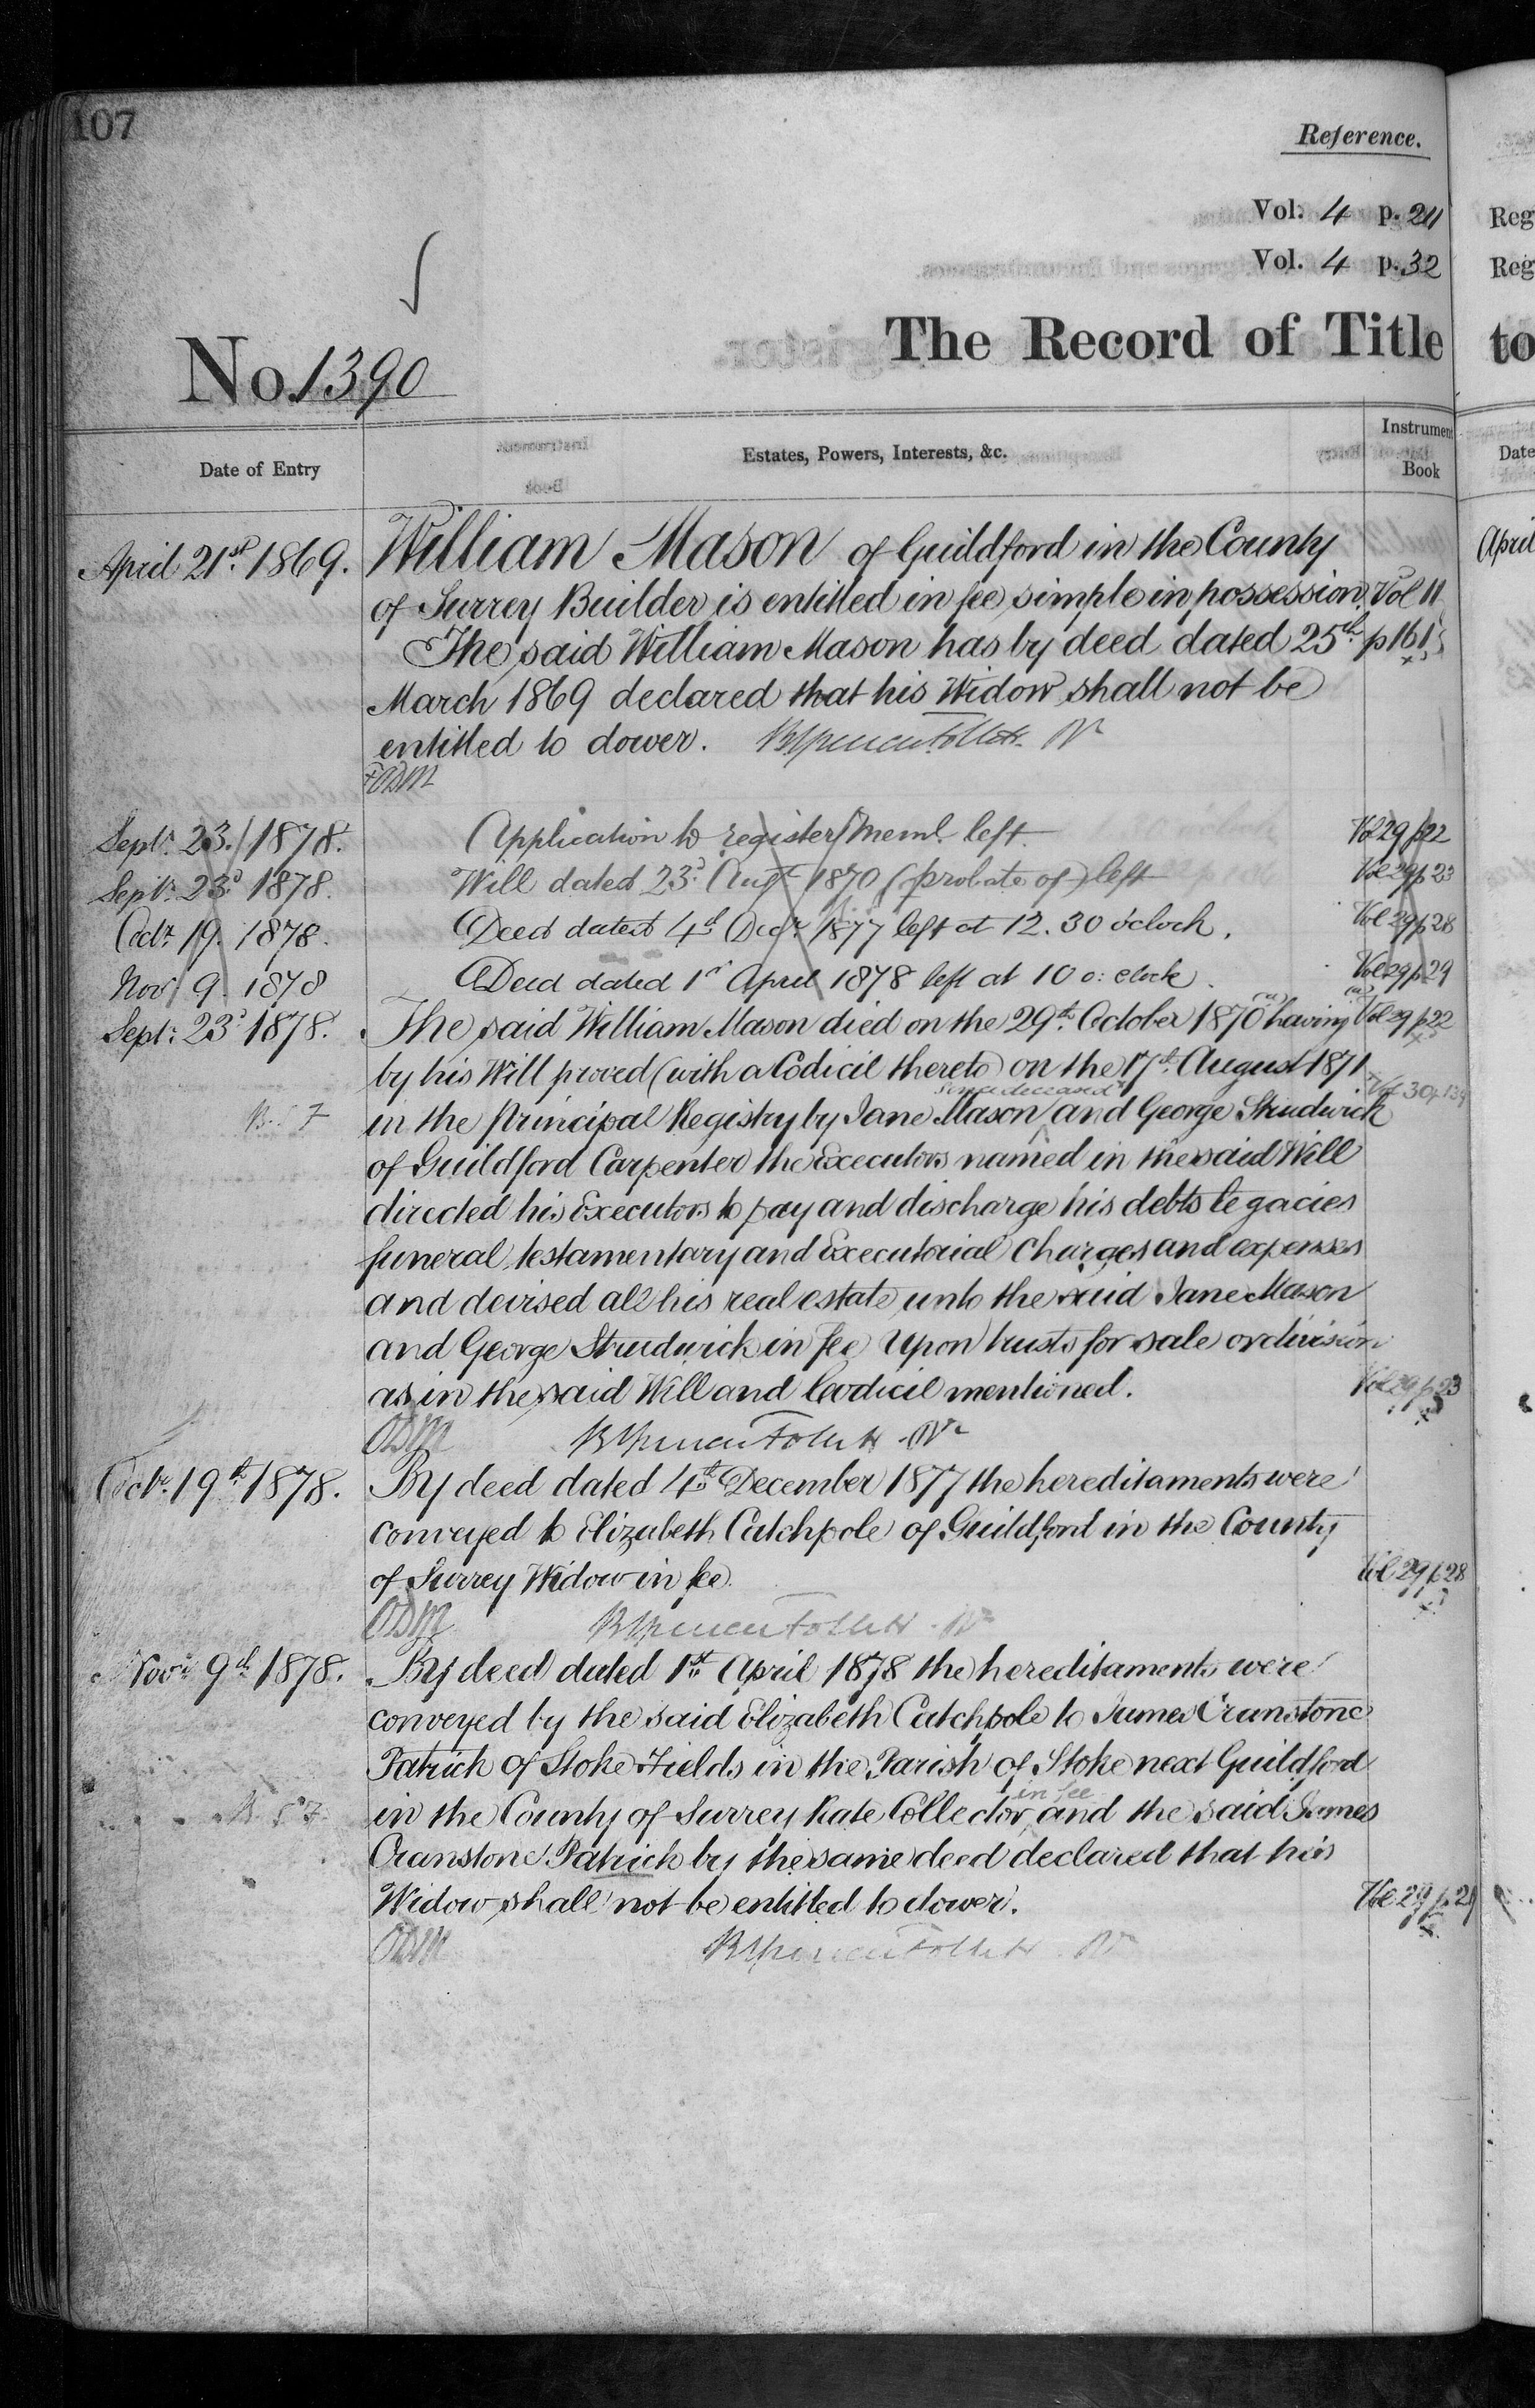 107
Reference.
Vol. 4 p. 211
Vol. 4 p. 32
The Record of Title
No. 1390
Date of Entry
Estates, Powers, Interests, &c.
Instrument
Book
April 21st 1869. William Mason of Guildford in the County
of Surrey Builder is entitled in fee simple in possession. Vol 11
The said William Mason has by deed dated 25th p 161
March 1869 declared that his Widow shall not be
entitled to dower.
Septr. 23. 1878. Application to register Meml. left. Vol 29 p 22
Septr. 23d 1878. Will dated 23d Augt 1870 (probate of) left Vol 29 p 23
Octr 19. 1878. Deed dated 4th Decr. 1877 left at 12.30 o'clock. Vol 29 p 28
Novr 9. 1878 Deed dated 1st April 1878 left at 10 o:clock. Vol 29 p 29
Septr 23d 1878. The said William Mason died on the 29th October 1870 (a) having (a) Vol 29 p 22
by his Will proved (with a Codicil thereto) on the 17th August 1871
since deceased Vol 30 p 139
in the Principal Registry by Jane Mason and George Strudwick
of Guildford Carpenter the Executors named in the said Will
directed his Executors to pay and discharge his debts legacies
funeral testamentary and Executorial Charges and expenses
and devised all his real estate unto the said Jane Mason
and George Strudwick in fee Upon trusts for sale or division
as in the said Will and Codicil mentioned. Vol 29 p 23
Octr. 19th 1878. By deed dated 4th December 1877 the hereditaments were
conveyed to Elizabeth Catchpole of Guildford in the County
of Surrey Widow in fee. Vol 29 p 28
Novr 9th 1878. By deed dated 1st April 1878 the hereditaments were
conveyed by the said Elizabeth Catchpole to James Cranstone
Patrick of Stoke Fields in the Parish of Stoke next Guildford
in fee
in the County of Surrey Rate Collector and the said James
Cranstone Patrick by the same deed declared that his
Widow shall not be entitled to dower. Vol 29 p 29
Reg
Reg
to
Date
April